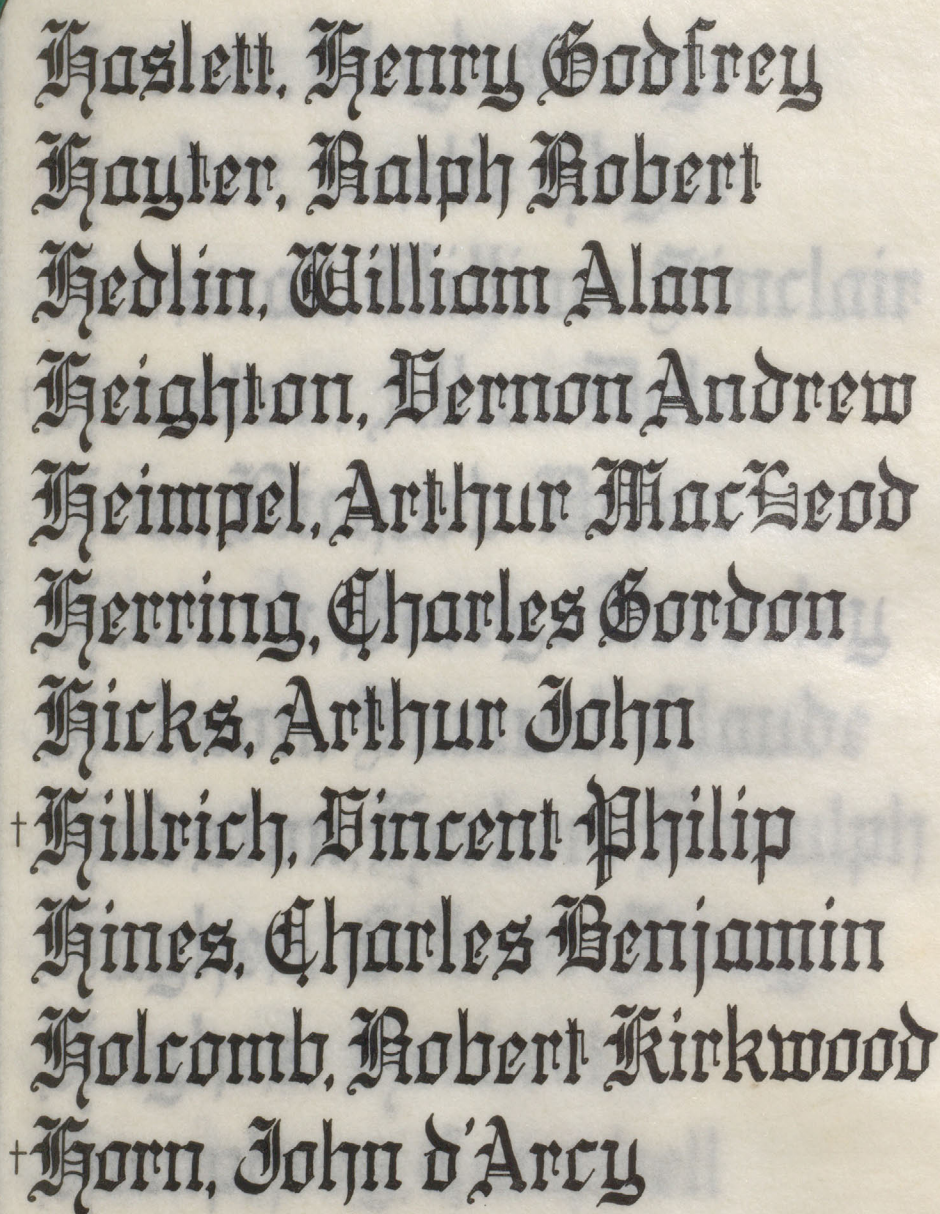 Haslett, Henry Godfrey
Hayter, Ralph Robert
Hedlin, William Alan
Heighton, Vernon Andrew
Heimpel, Arthur MacLeod
Herring, Charles Gordon
Hicks, Arthur John
†Hillrich, Vincent Philip
Hines, Charles Benjamin
Holcomb, Robert Kirkwood
†Horn, John d'Arcy